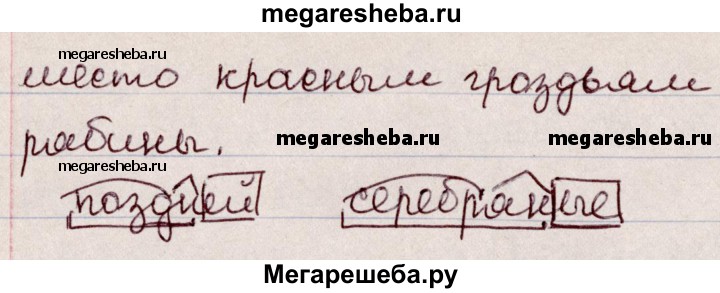 megaresheba.ru
megaresheba.ru
место красным гроздьям
рябины.
megaresheba.ru megaresheba.ru
megaresheba.ru
поздней серебряные
Мегарешеба.ру